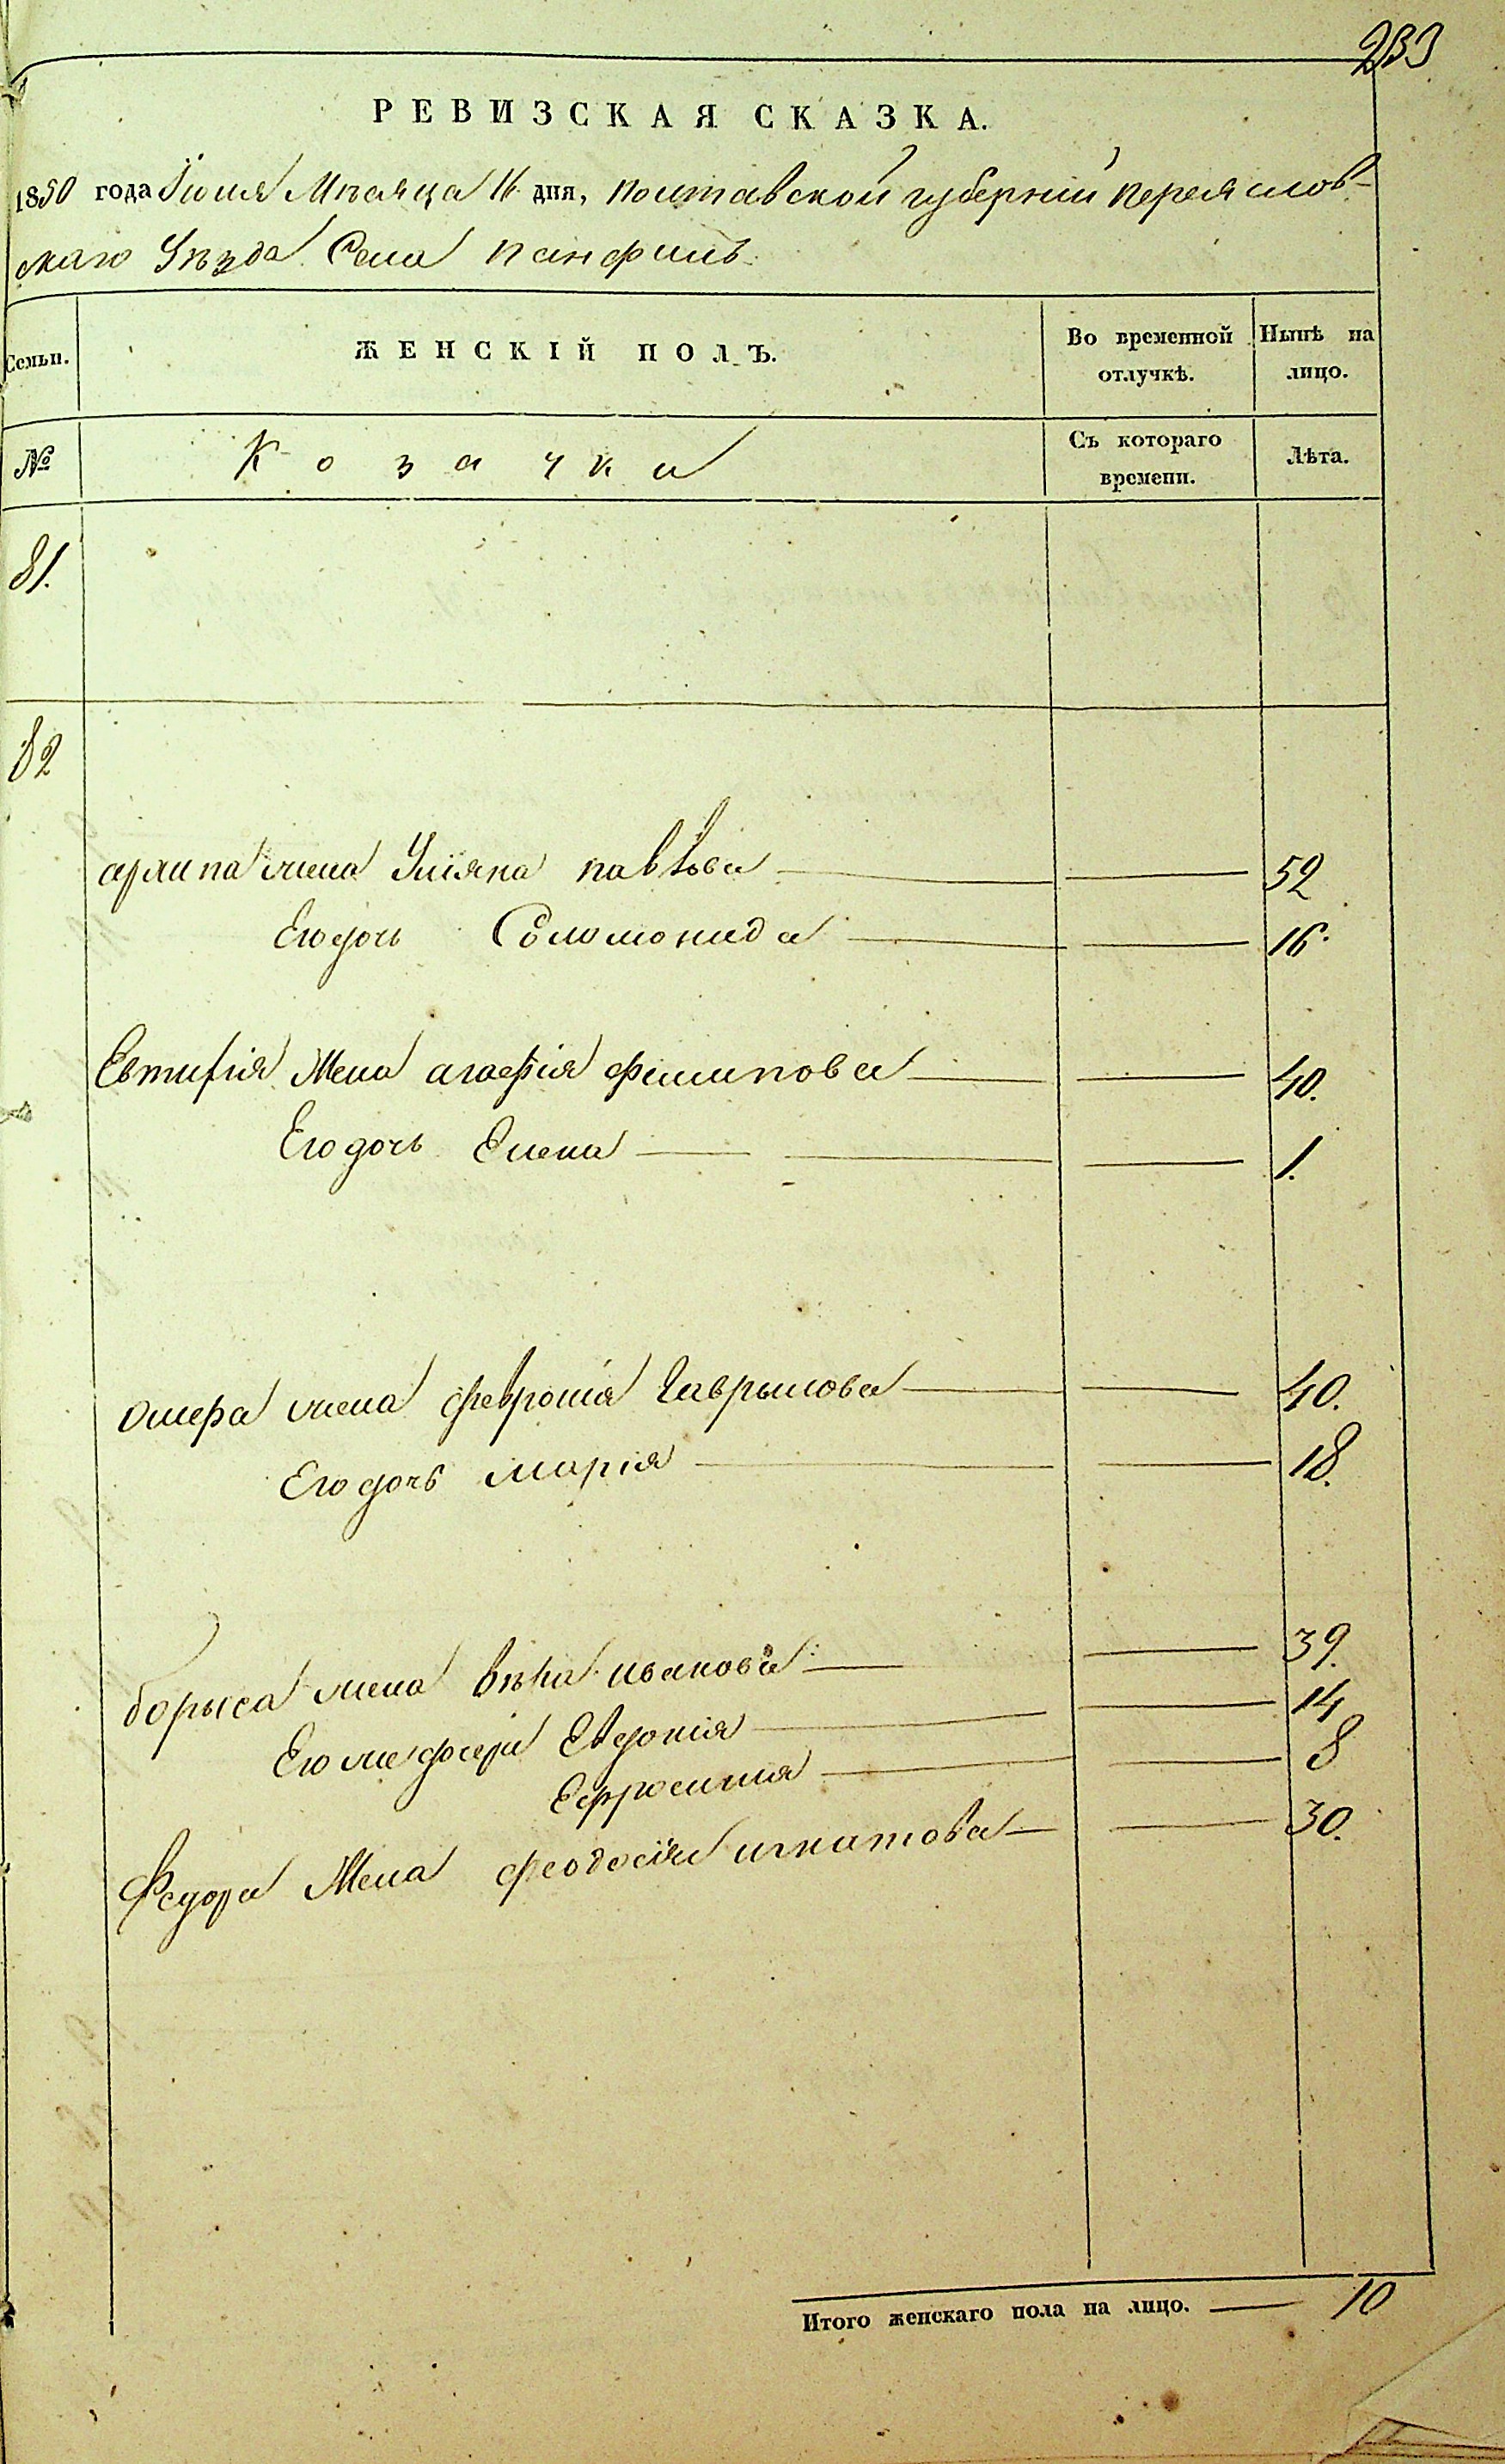 233
РЕВИЗСКАЯ СКАЗКА.
1850 года Июля Мѣсяца 16 дня, полтавской губерніи переяслов-
скаго Уѣзда Села панфилъ.
Семьи.
ЖЕНСКІЙ ПОЛЪ.
Во временной отлучкѣ.
Нынѣ на лицо.
№
Козачки
Съ котораго времени.
Лѣта.
81.
82
архипа жена Уліяна павлова 52
Его дочь Соломонида 16.
Евтифія Жена агафія филипова 40.
Его дочь Елена 1.
жена февронія Гаврылова 40.
Его дочь марія 18.
борыса жена иванова 39.
Его же дочери Евдокія 14
Ефросинія 8
Федора Жена феодосія игнатова 30.
Итого женскаго пола на лицо. 10